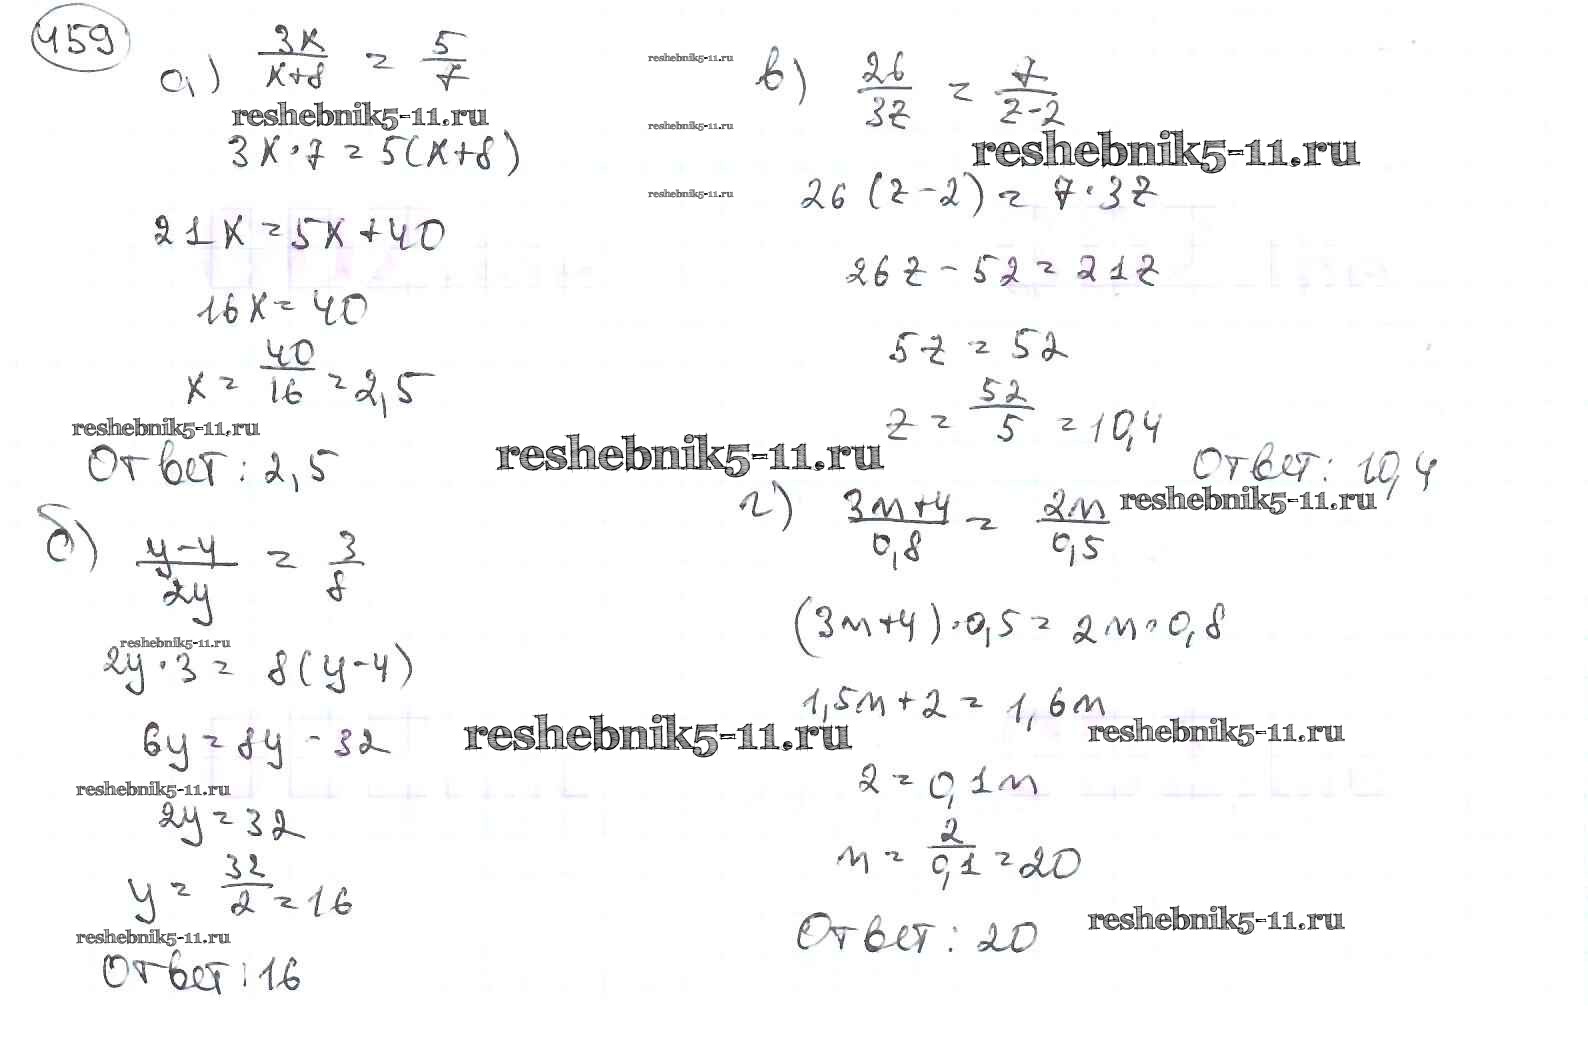 459
а) 3x/(x+8) = 5/7
reshebnik5-11.ru
3x·7 = 5(x+8)
21x = 5x+40
16x = 40
x = 40/16 = 2,5
reshebnik5-11.ru
Ответ: 2,5
б) (y-4)/2y = 3/8
reshebnik5-11.ru
2y·3 = 8(y-4)
6y = 8y - 32
reshebnik5-11.ru
2y = 32
y = 32/2 = 16
reshebnik5-11.ru
Ответ: 16
reshebnik5-11.ru
reshebnik5-11.ru
reshebnik5-11.ru
reshebnik5-11.ru
reshebnik5-11.ru
в) 26/3z = 7/(z-2)
reshebnik5-11.ru
26(z-2) = 7·3z
26z - 52 = 21z
5z = 52
z = 52/5 = 10,4
Ответ: 10,4
reshebnik5-11.ru
г) (3m+4)/0,8 = 2m/0,5
(3m+4)·0,5 = 2m·0,8
1,5m+2 = 1,6m
reshebnik5-11.ru
2 = 0,1m
m = 2/0,1 = 20
reshebnik5-11.ru
Ответ: 20